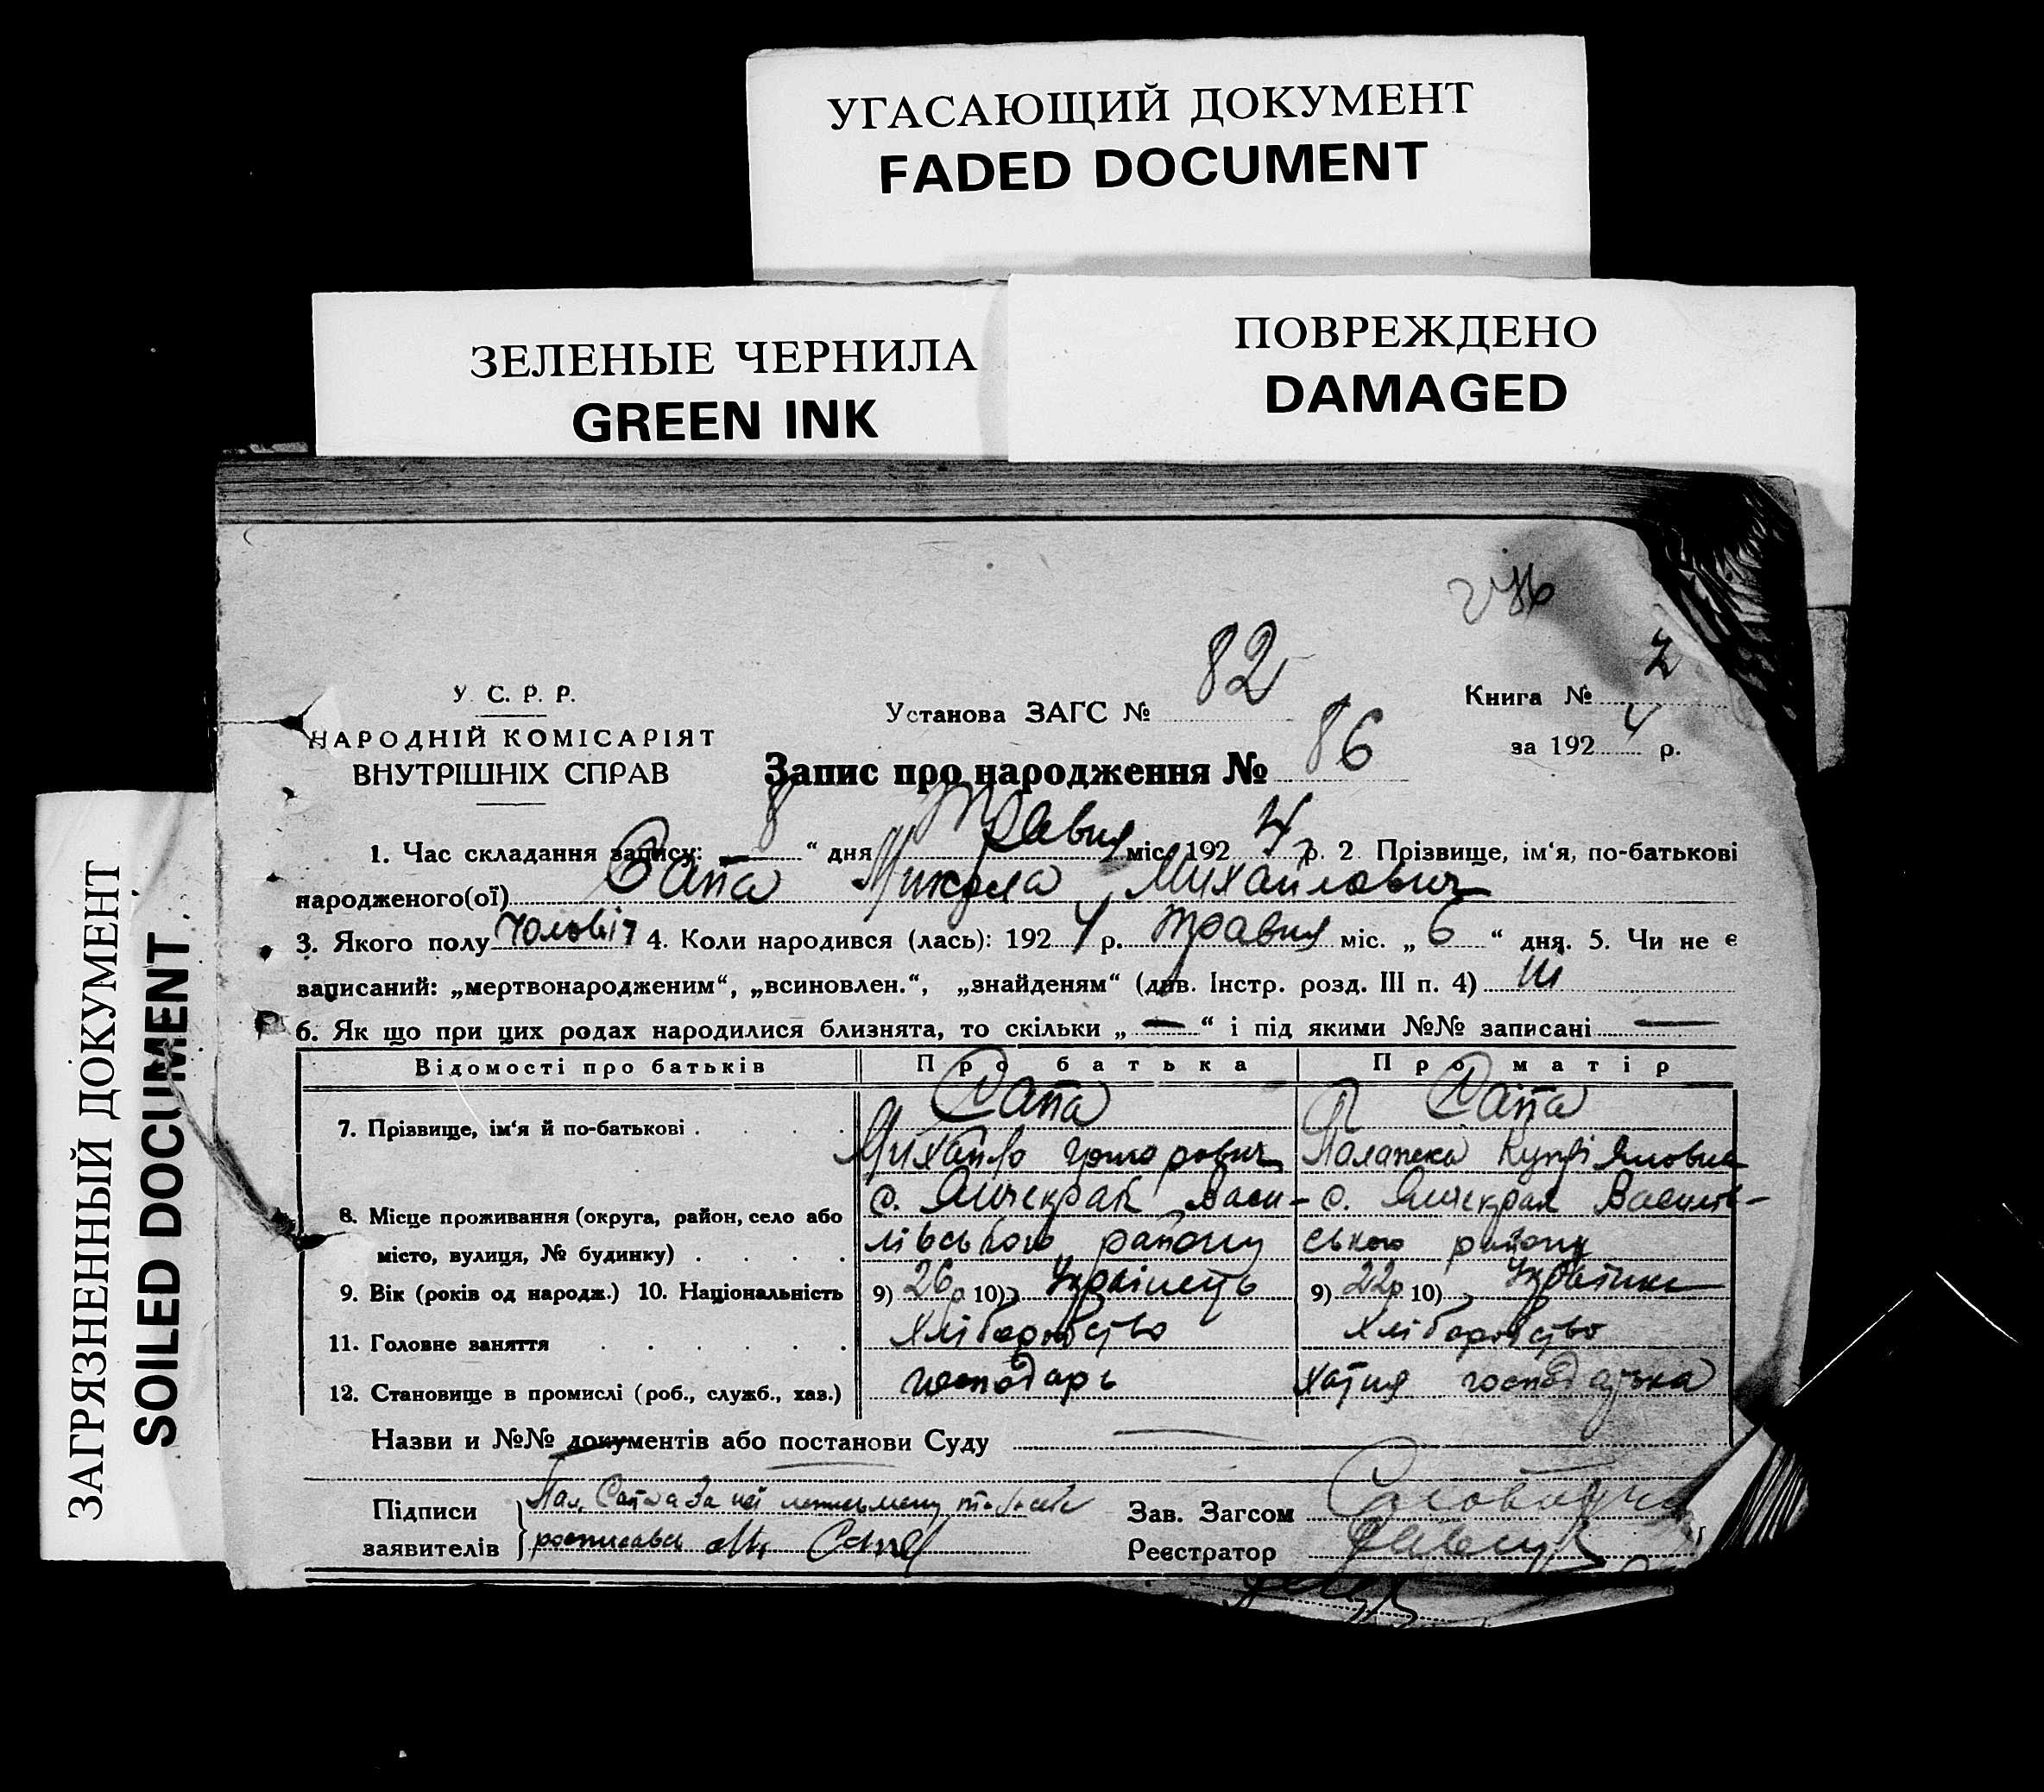 УГАСАЮЩИЙ ДОКУМЕНТ
FADED DOCUMENT
ЗЕЛЕНЫЕ ЧЕРНИЛА
GREEN INK
ПОВРЕЖДЕНО
DAMAGED
ЗАГРЯЗНЕННЫЙ ДОКУМЕНТ
SOILED DOCUMENT
У. С. Р. Р.
НАРОДНІЙ КОМІСАРІЯТ
ВНУТРІШНІХ СПРАВ
Установа ЗАГС № 82
Книга № 2
за 1924 р.
Запис про народження № 86
1. Час складання запису: 8 “ дня травня міс. 1924 р. 2. Прізвище, ім‘я, по-батькові
народженого(ої) Сапа Микола Михайлович
3. Якого полу 4. Коли народився (лась): 1924 р. травня міс. „ 6 “ дня. 5. Чи не є
записаний: „мертвонародженим“, „всиновлен.“, „знайденям“ (див. Інстр. розд. III п. 4) ні
6. Як що при цих родах народилися близнята, то скільки „ — “ і під якими №№ записані —
Відомості про батьків Про батька Про матір
7. Прізвище, ім‘я й по-батькові . . . . Сапа Сапа
Михайло Палажка
8. Місце проживання (округа, район, село або с. Янчекрак Васи- с. Янчекрак Василів-
місто, вулиця, № будинку) . . . . лівського району ського району
9. Вік (років од народж.) 10. Національність 9) 26 р 10) Українець 9) 22 р 10) Українка
11. Головне заняття . . . . . . Хліборобство Хліборобство
12. Становище в промислі (роб., служб., хаз.) господарь хатня господарька
Назви и №№ документів або постанови Суду —
Підписи Пал. Сапа за неї Зав. Загсом
заявителів росписався Сапа Реєстратор